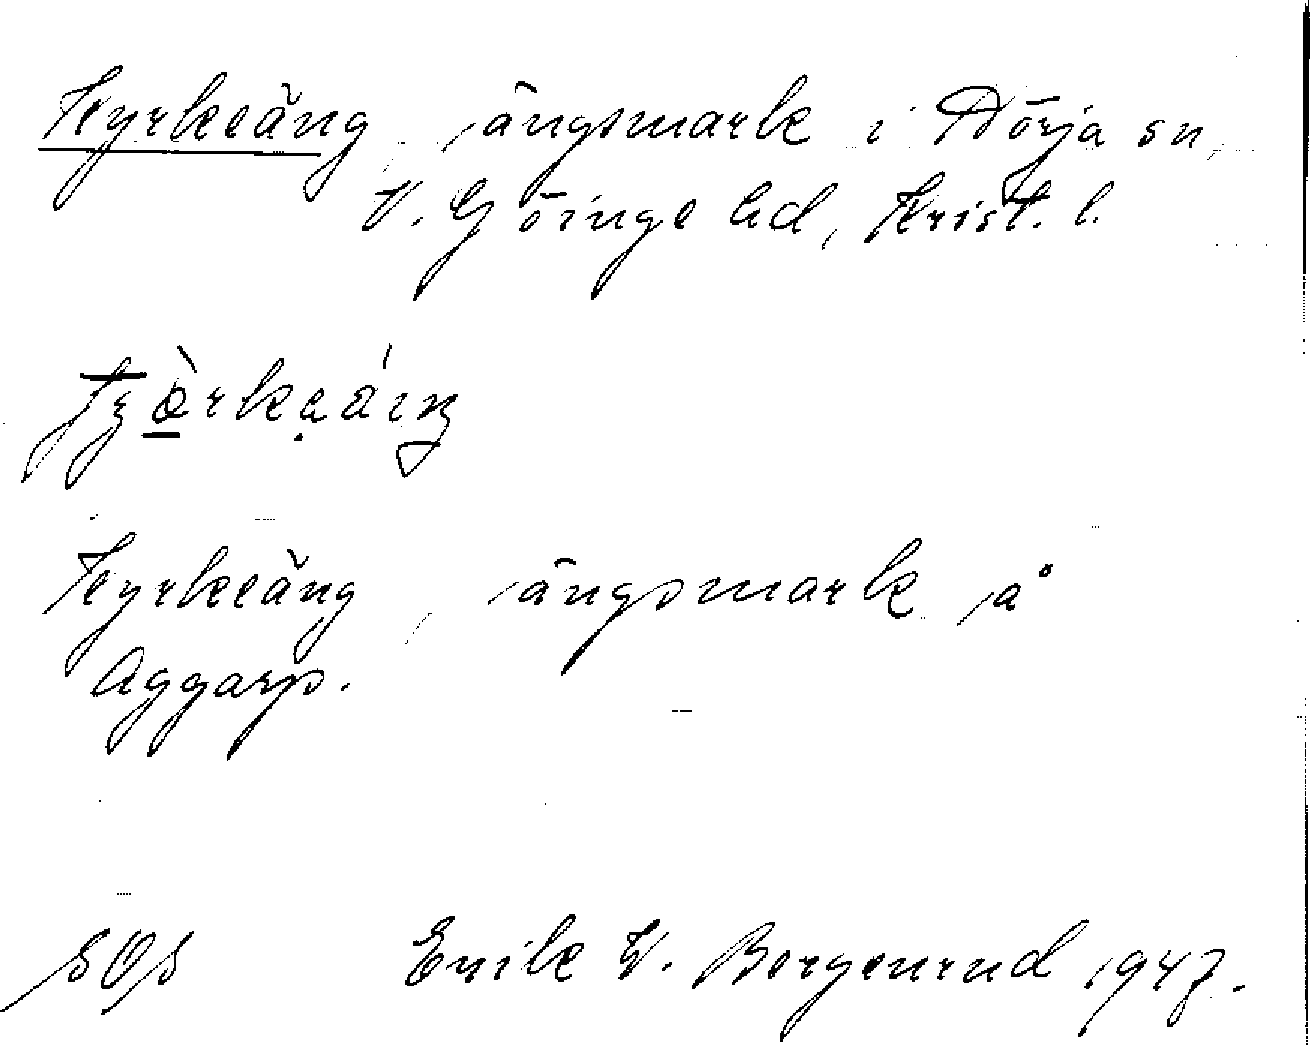 Kyrkeäng, ängsmark i Nörja sn,
V. Göinge hd, Krist. l.
Kyrkeäng, ängsmark å
Aggarp.
SOS Erik W. Bergenrud 1947.